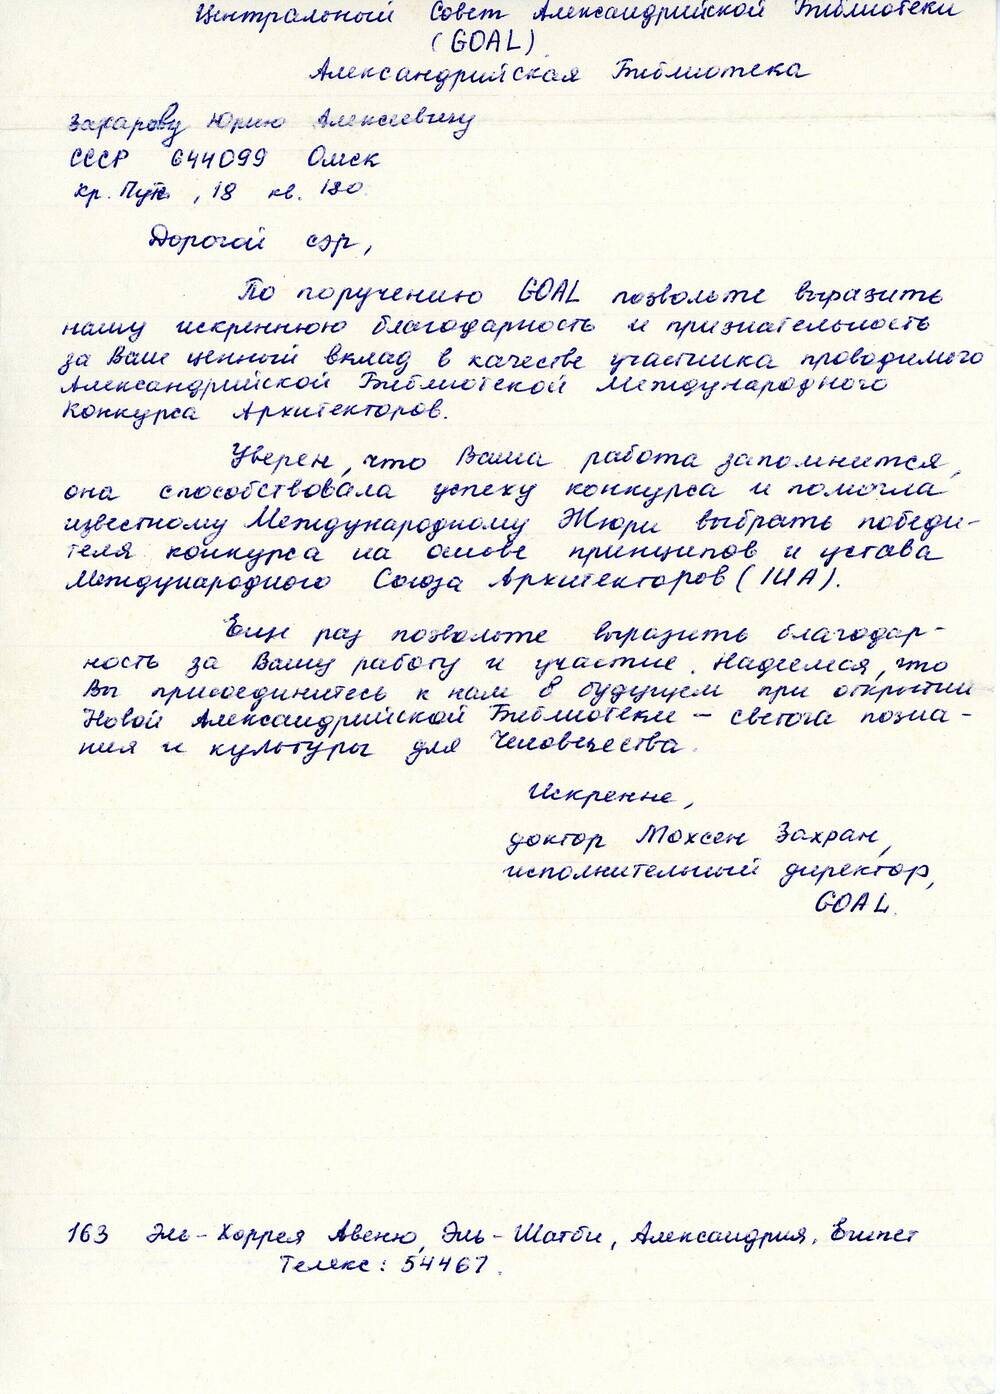 Центральный Совет Александрийской Библиотеки
(GOAL)
Александрийская Библиотека
Захарову Юрию Алексеевичу
СССР 644099 Омск
Кр. Путь, 18 кв. 180.
Дорогой сэр,
По поручению GOAL позвольте выразить
нашу искреннюю благодарность и признательность
за Ваш ценный вклад в качестве участника проводимого
Александрийской Библиотекой Международного
Конкурса Архитекторов.
Уверен, что Ваша работа запомнится,
она способствовала успеху конкурса и помогла
известному Международному Жюри выбрать победи-
теля конкурса на основе принципов и устава
Международного Союза Архитекторов (IUA).
Еще раз позвольте выразить благодар-
ность за Вашу работу и участие. Надеемся, что
Вы присоединитесь к нам в будущем при открытии
Новой Александрийской Библиотеки – светоча позна-
ния и культуры для Человечества.
Искренне,
доктор Мохсен Захран,
исполнительный директор,
GOAL.
163 Эль-Хоррея Авеню, Эль-Шатби, Александрия, Египет
Телекс: 54467.